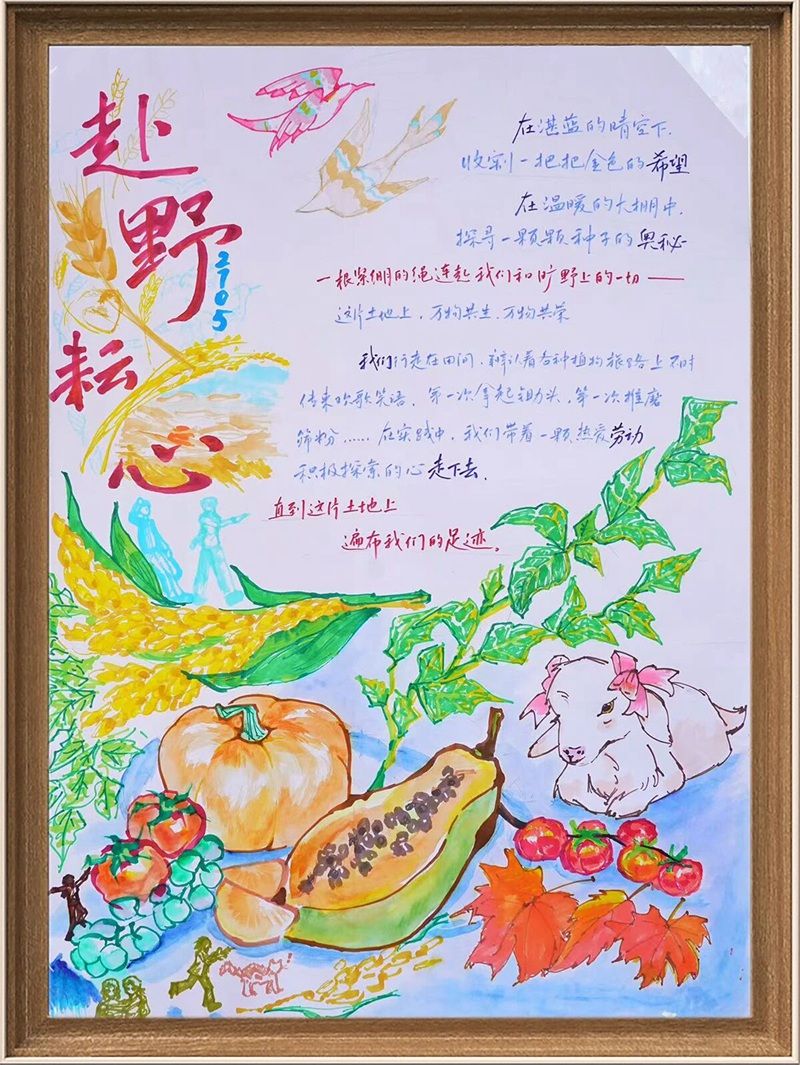 赴野
2705
耘心
在湛蓝的晴空下,
收割一把把金色的希望
在温暖的大棚中,
探寻一颗颗种子的奥秘
一根紧绷的绳连起我们和旷野上的一切——
这片土地上,万物共生,万物共荣
我们行走在田间,辨认着各种植物旅路上不时
传来欢歌笑语,第一次拿起锄头,第一次推磨
筛粉……在实践中,我们带着一颗热爱劳动
积极探索的心走下去,
直到这片土地上
遍布我们的足迹。